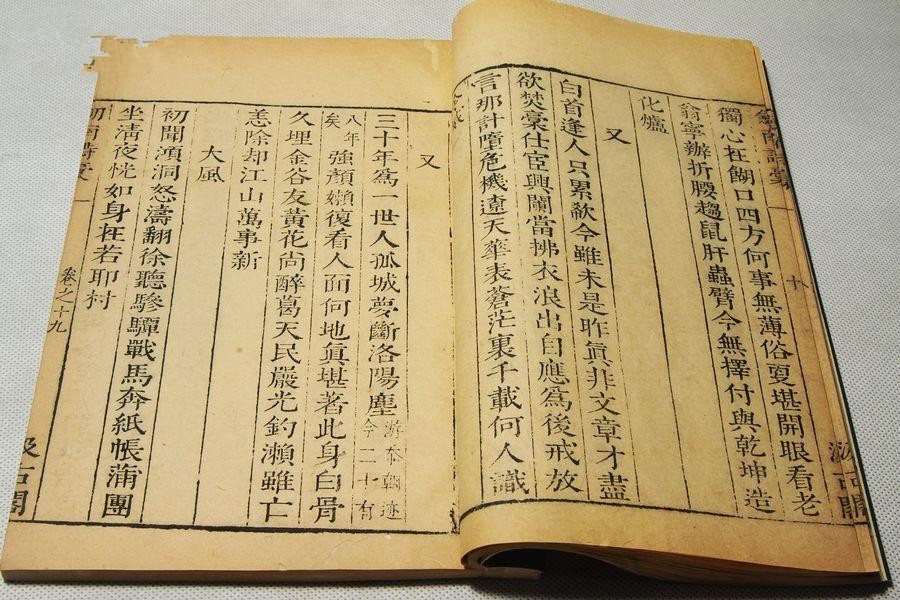 劍南詩稾 十 汲古閣
獨心在餬口四方何事無薄俗更堪開眼看老
翁寧辦折腰趨鼠肝蟲臂今無擇付與乾坤造
化爐
又
白首逢人只累欷今雖未是昨眞非文章才盡
欲焚稾仕宦興闌當拂衣浪出自應爲後戒放
言那計墮危機遼天華表蒼茫裏千載何人識
令威
又
三十年爲一世人孤城夢斷洛陽塵游奉朝迹今二十有
八年矣強顏嬾復看人面何地眞堪著此身白骨
久埋金谷友黃花尚醉葛天民嚴光釣瀨雖亡
恙除却江山萬事新
大風
初聞澒洞怒濤翻徐聽驂驔戰馬奔紙帳蒲團
坐淸夜恍如身在若耶村
劍南詩稾 卷之十九 汲古閣